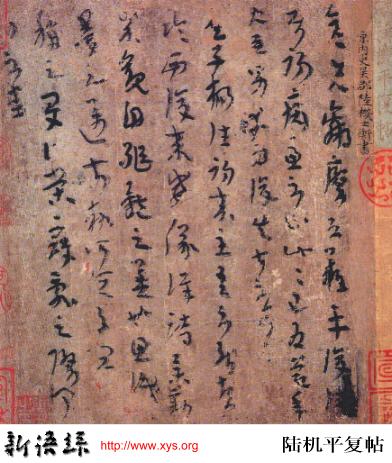 內史吳郡陸機士衡書
彥先羸瘵恐難平復
病慮不止此此已為慶
使唯男幸為復失前憂耳
吳子楊往初來主吾不能盡
臨西復來威儀詳跱舉動
成觀自軀體之美也思識
量之邁前執所恒有宜
稱之夏伯榮寇亂之際聞
問不悉
新語絲 http://www.xys.org 陆机平复帖